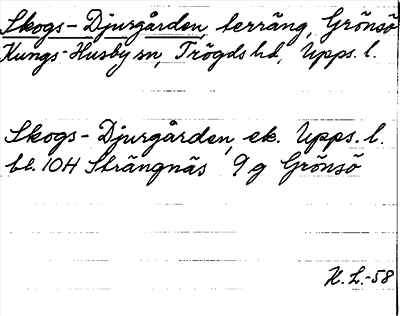 Skogs-Djurgården, terräng, Grönsö
Kungs-Husby sn, Trögds hd, Upps. l.
Skogs-Djurgården, ek. Upps. l.
bl. 10H Strängnäs, 9 g Grönsö
N. L.-58